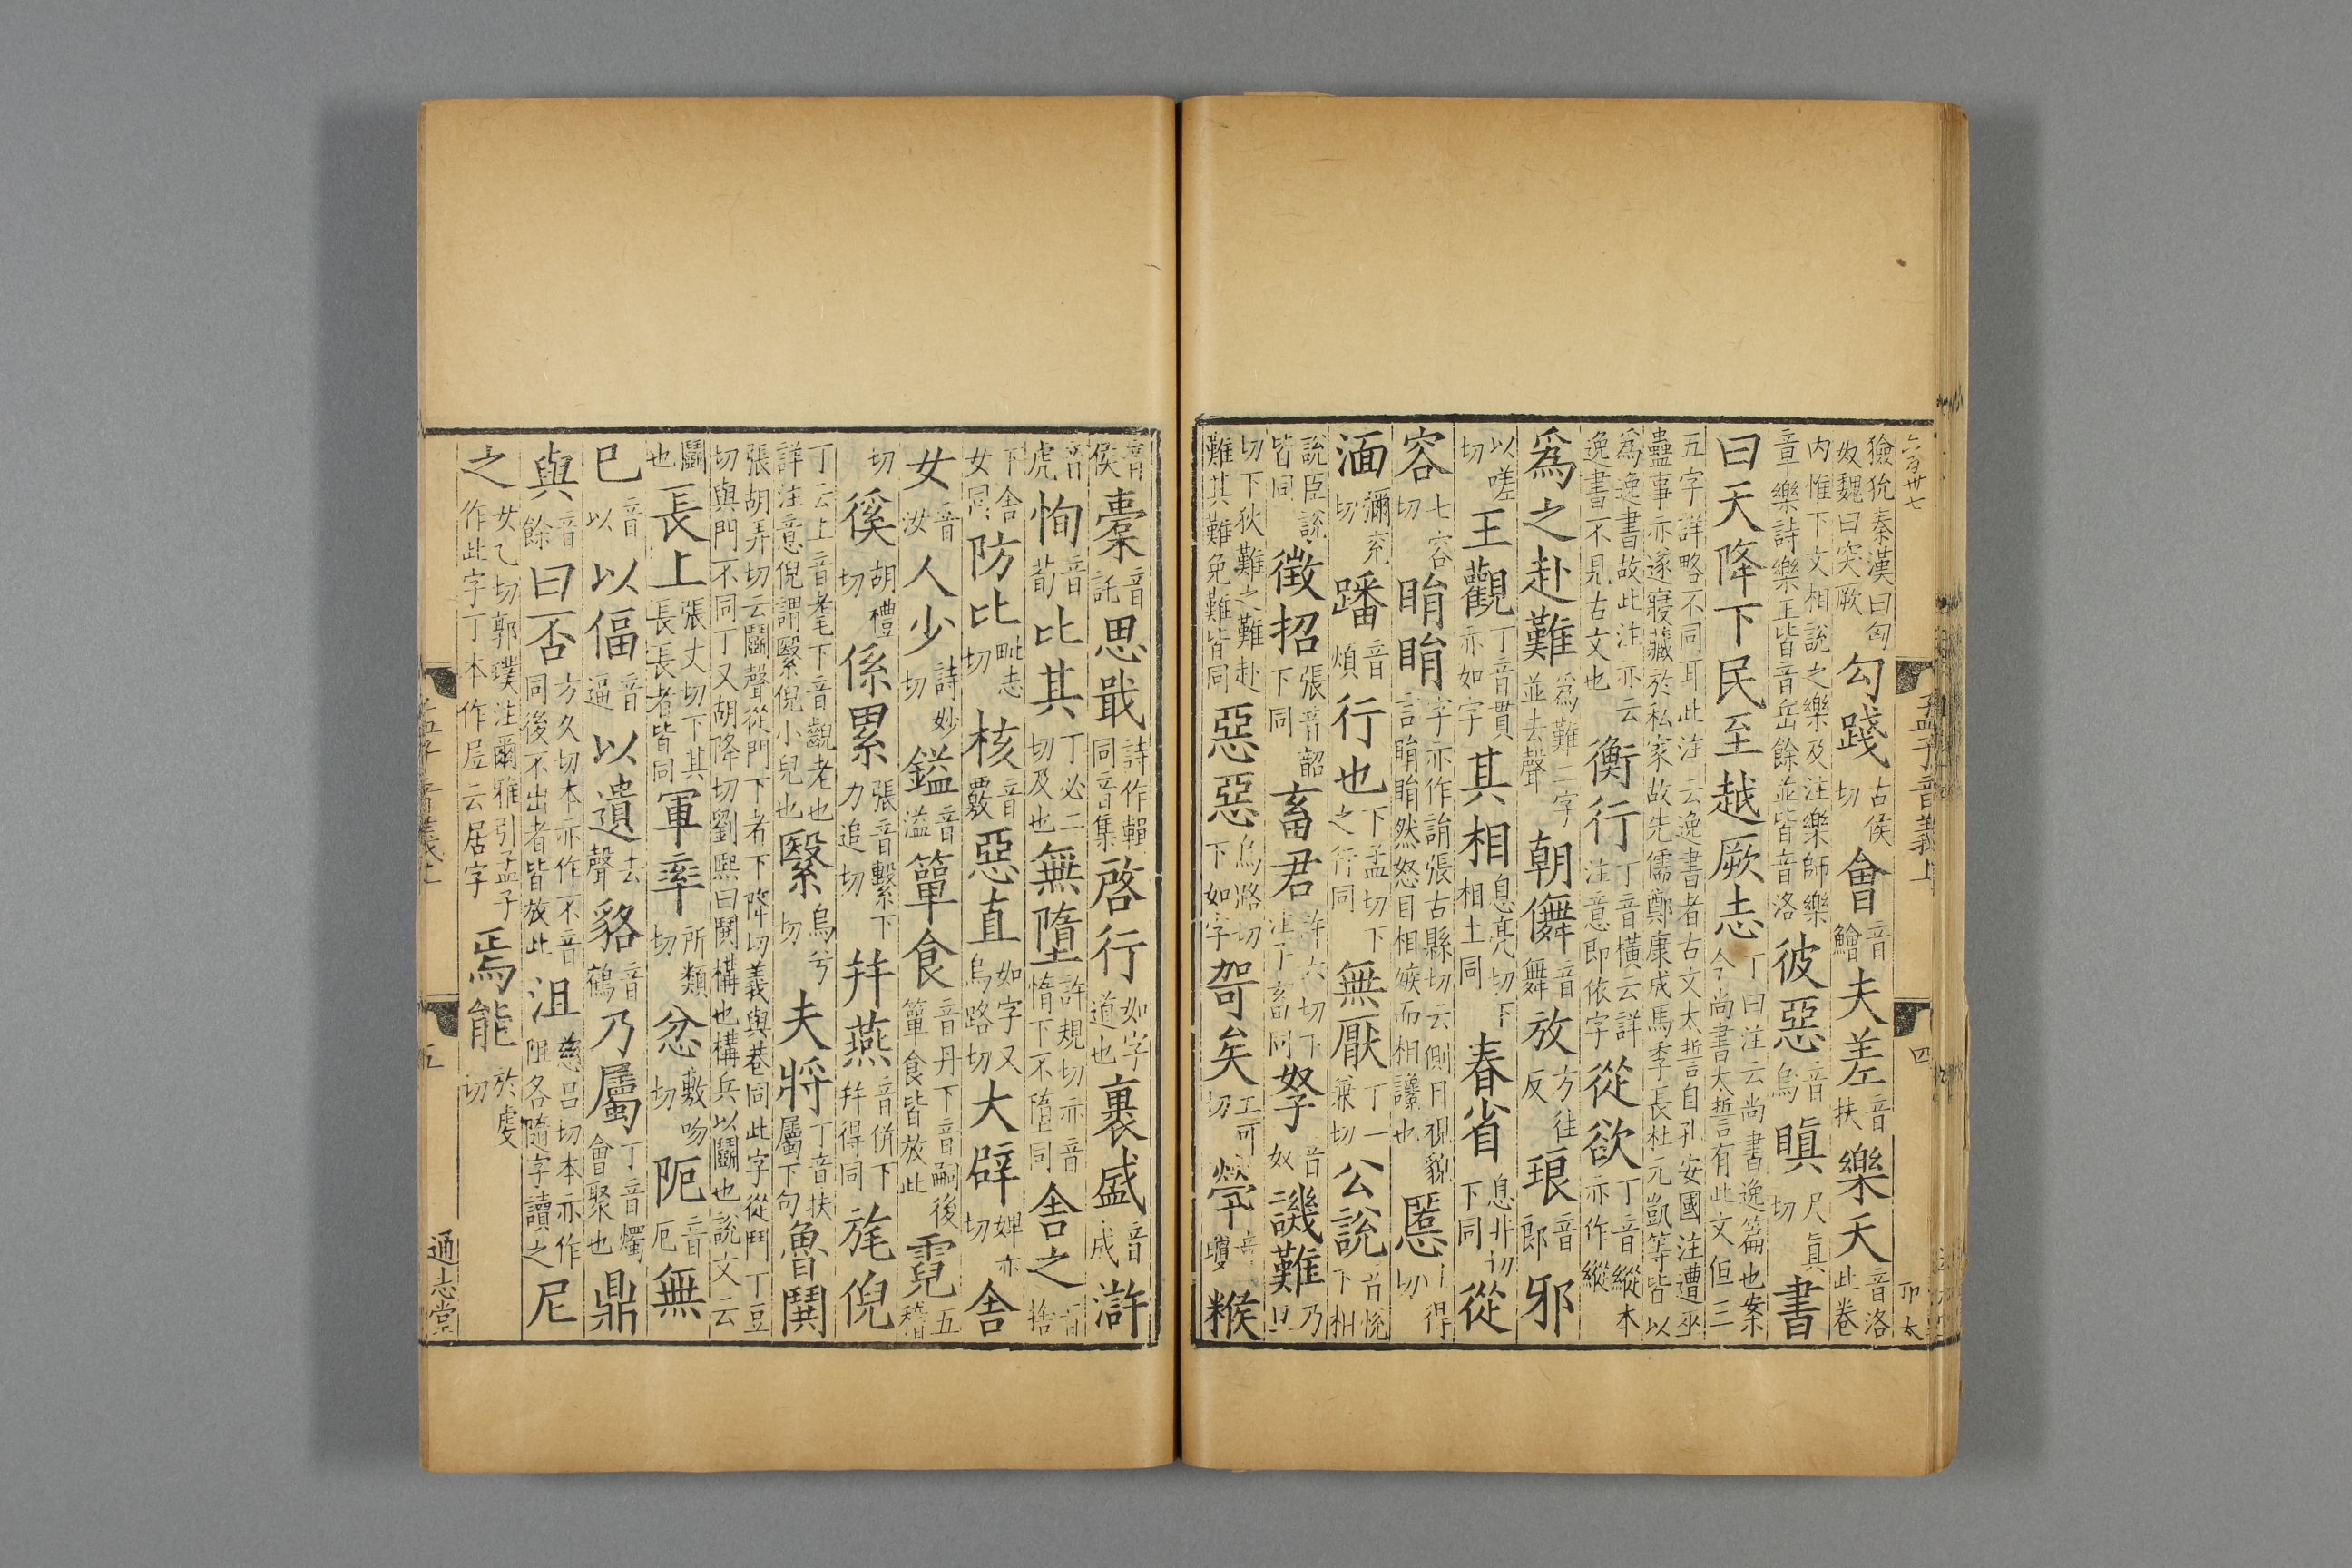 六百卅七
孟子音義上 四
獫狁秦漢曰匈奴魏曰突厥勾踐古侯切會音鱠夫差音扶樂天音洛此卷
内惟下文相說之樂及注樂師樂音樂詩樂正皆音岳餘並皆音洛彼惡音烏瞋尺眞切書
曰天降下民至越厥志丁曰注云尚書逸篇也案今尚書太誓有此文但三
五字詳略不同耳此注云逸書者古文太誓自孔安國注遭巫蠱事亦遂寢藏於私家故先儒鄭康成馬季長杜元凱等皆以
爲逸書故此注亦云逸書不見古文也衡行丁音橫云詳注意即依字從欲丁音縱本亦作縱
爲之赴難爲難二字並去聲朝儛音舞放方往反琅音郎邪
以嗟切王觀丁音貫亦如字其相息亮切下相土同春省息井切下同從
容七容切睊睊字亦作詽張古縣切云側目視貌言睊睊然怒目相嫉而相讒也慝丁得切
湎彌兖切蹯音煩行也下孟切下之行同無厭丁一兼切公說音悅下相
說臣說皆同徵招張音韶下同畜君許六切下注下畜同孥音奴譏難乃旦
切下狄難之難赴難其難免難皆同惡惡烏路切下如字哿矣工可切煢音瓊糇
音侯橐音託思戢詩作輯同音集啓行如字道也裏盛音成滸
音虎恂音荀比其丁必二切及也無墮許規切亦音惰下不隳同舍之音捨
下舍女同防比毗志切核音覈惡直如字又烏路切大辟婢亦切舍
女音汝人少詩妙切鎰音溢簞食音丹下音嗣後簞食皆放此霓五稽
切徯胡禮切係累張音繫下力追切幷燕音併下幷得同旄倪
丁云上音耄下音齯老也詳注意倪謂繄倪小兒也繄烏兮切夫將丁音扶屬下句魯鬨
張胡弄切云鬭聲從門下者下降切義與巷同此字從鬥丁豆切與門不同丁又胡降切劉熙曰鬨構也構兵以鬭也說文云
鬭也長上張丈切下其長長者皆同軍率所類切忿敷吻切阨音厄無
巳音以以偪音逼以遺去聲貉音鶴乃屬丁音燭會聚也鼎
與音餘曰否方久切本亦作不音同後不出者皆放此沮慈呂切本亦作阻各隨字讀之尼
之女乙切郭璞注爾雅引孟子作此字丁本作㞐云居字焉能於虔切
孟子音義上 五
通志堂